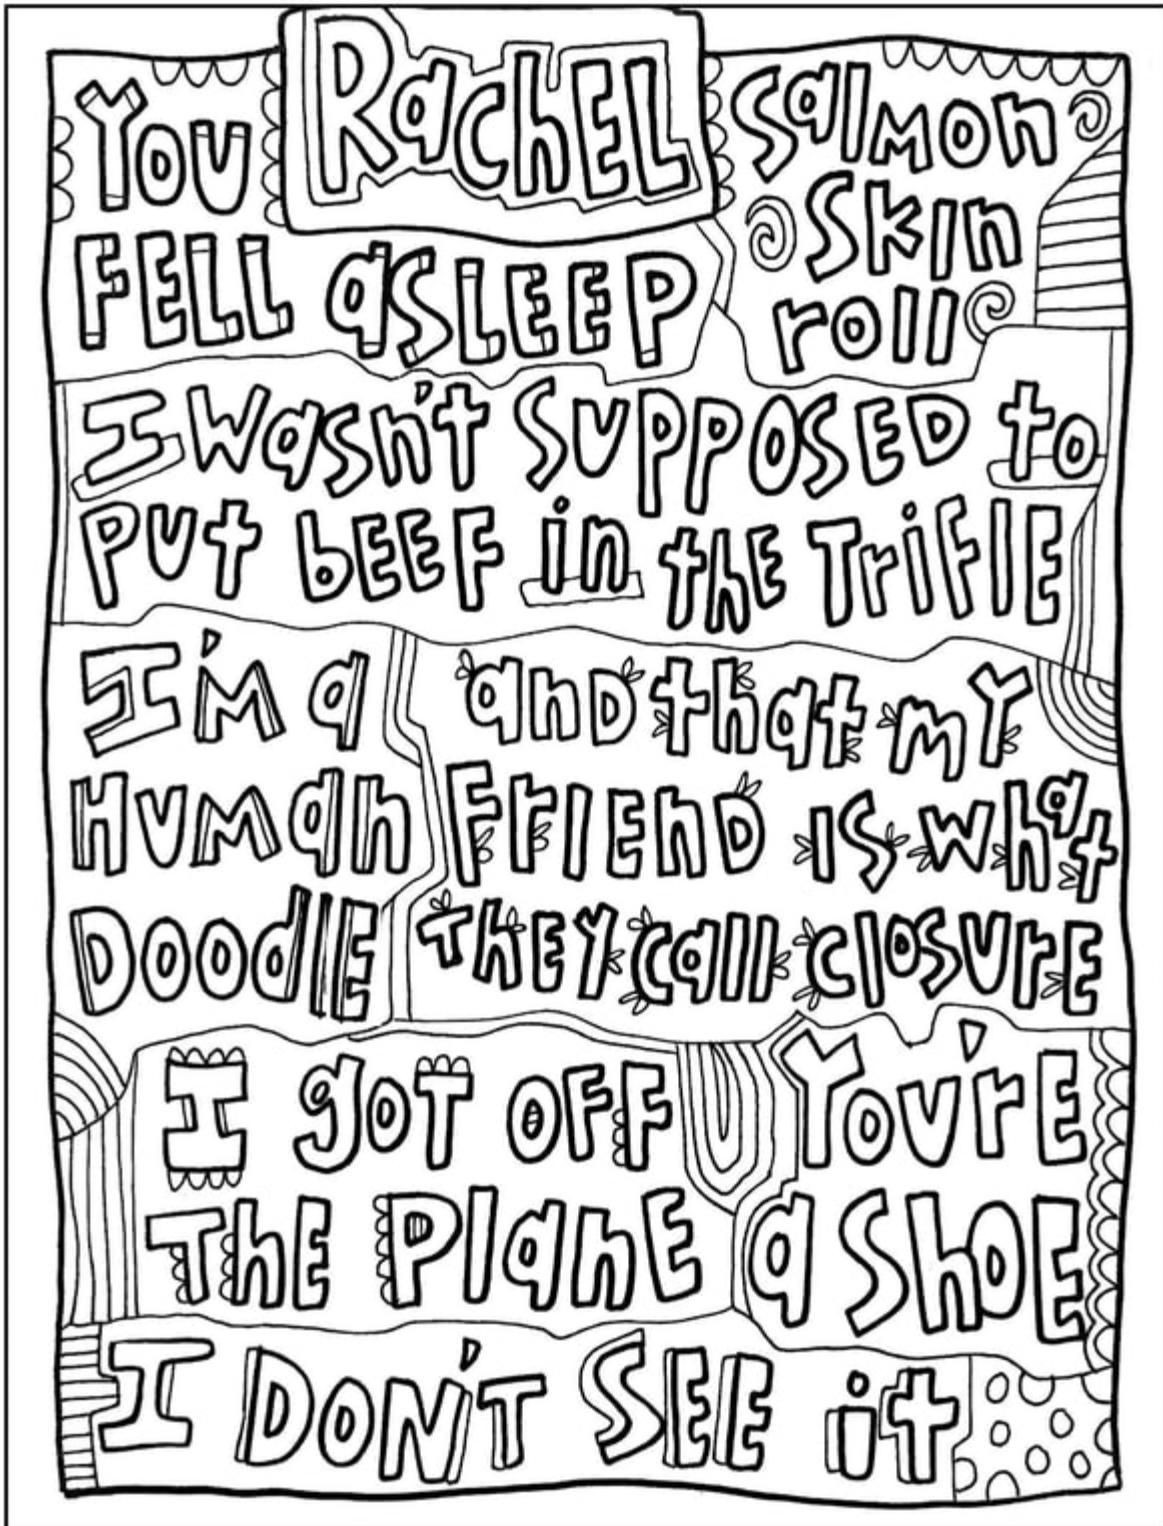 Rachel
You
FELL asLEEP
salmon
skin
roll
I wasn't supposed to
put bEEF in the TriflE
I'm a
Human
DoodlE
and that my
FriEnd is what
thEy call closurE
I got off
The PlanE
You'rE
a shoE
I DON'T SEE it